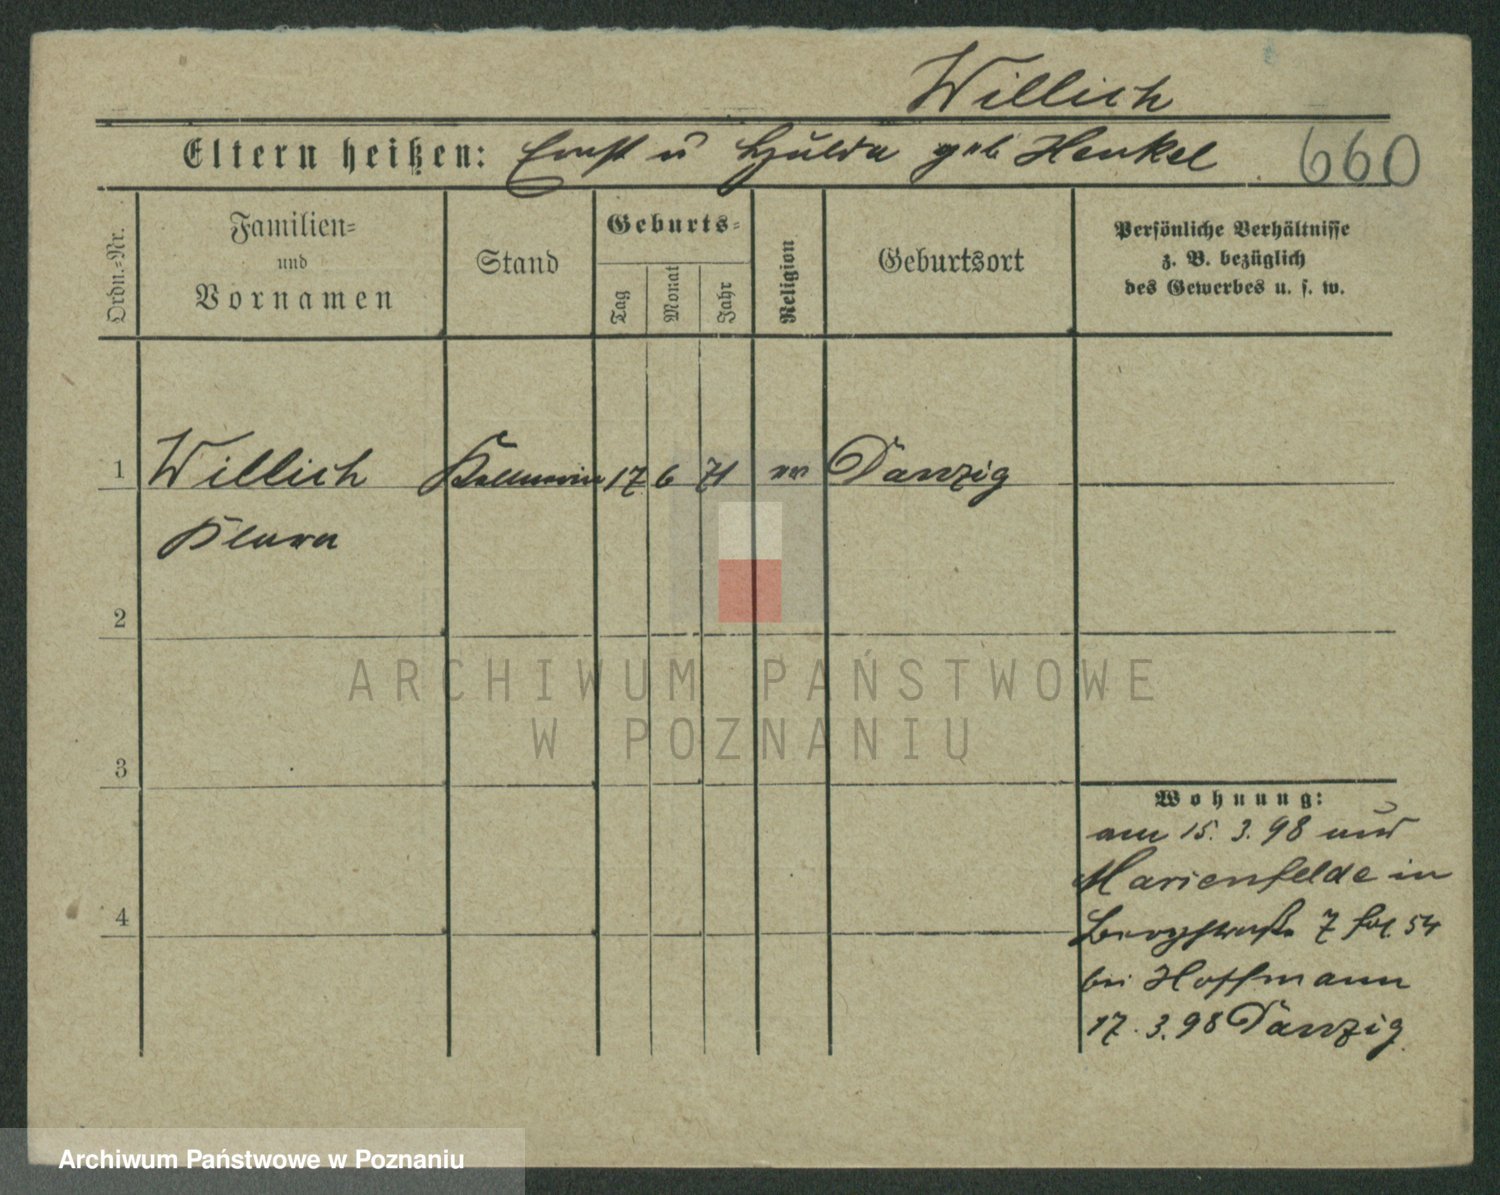 Willich
Eltern heißen: Ernst u Hulda geb Henkel
660
Ordn.-Nr.
Familien-
und
Vornamen
Stand
Geburts-
Tag
Monat
Jahr
Religion
Geburtsort
Persönliche Verhältnisse
z. B. bezüglich
des Gewerbes u. s. w.
1 Willich Kellnerin 17 6 71 ev Danzig
Klara
2
3
4
Wohnung:
am 15. 3. 98 aus
Marienfelde in
Bergstraße 7
bei Hoffmann
17. 3. 98 Danzig
ARCHIWUM PAŃSTWOWE
W POZNANIU
Archiwum Państwowe w Poznaniu